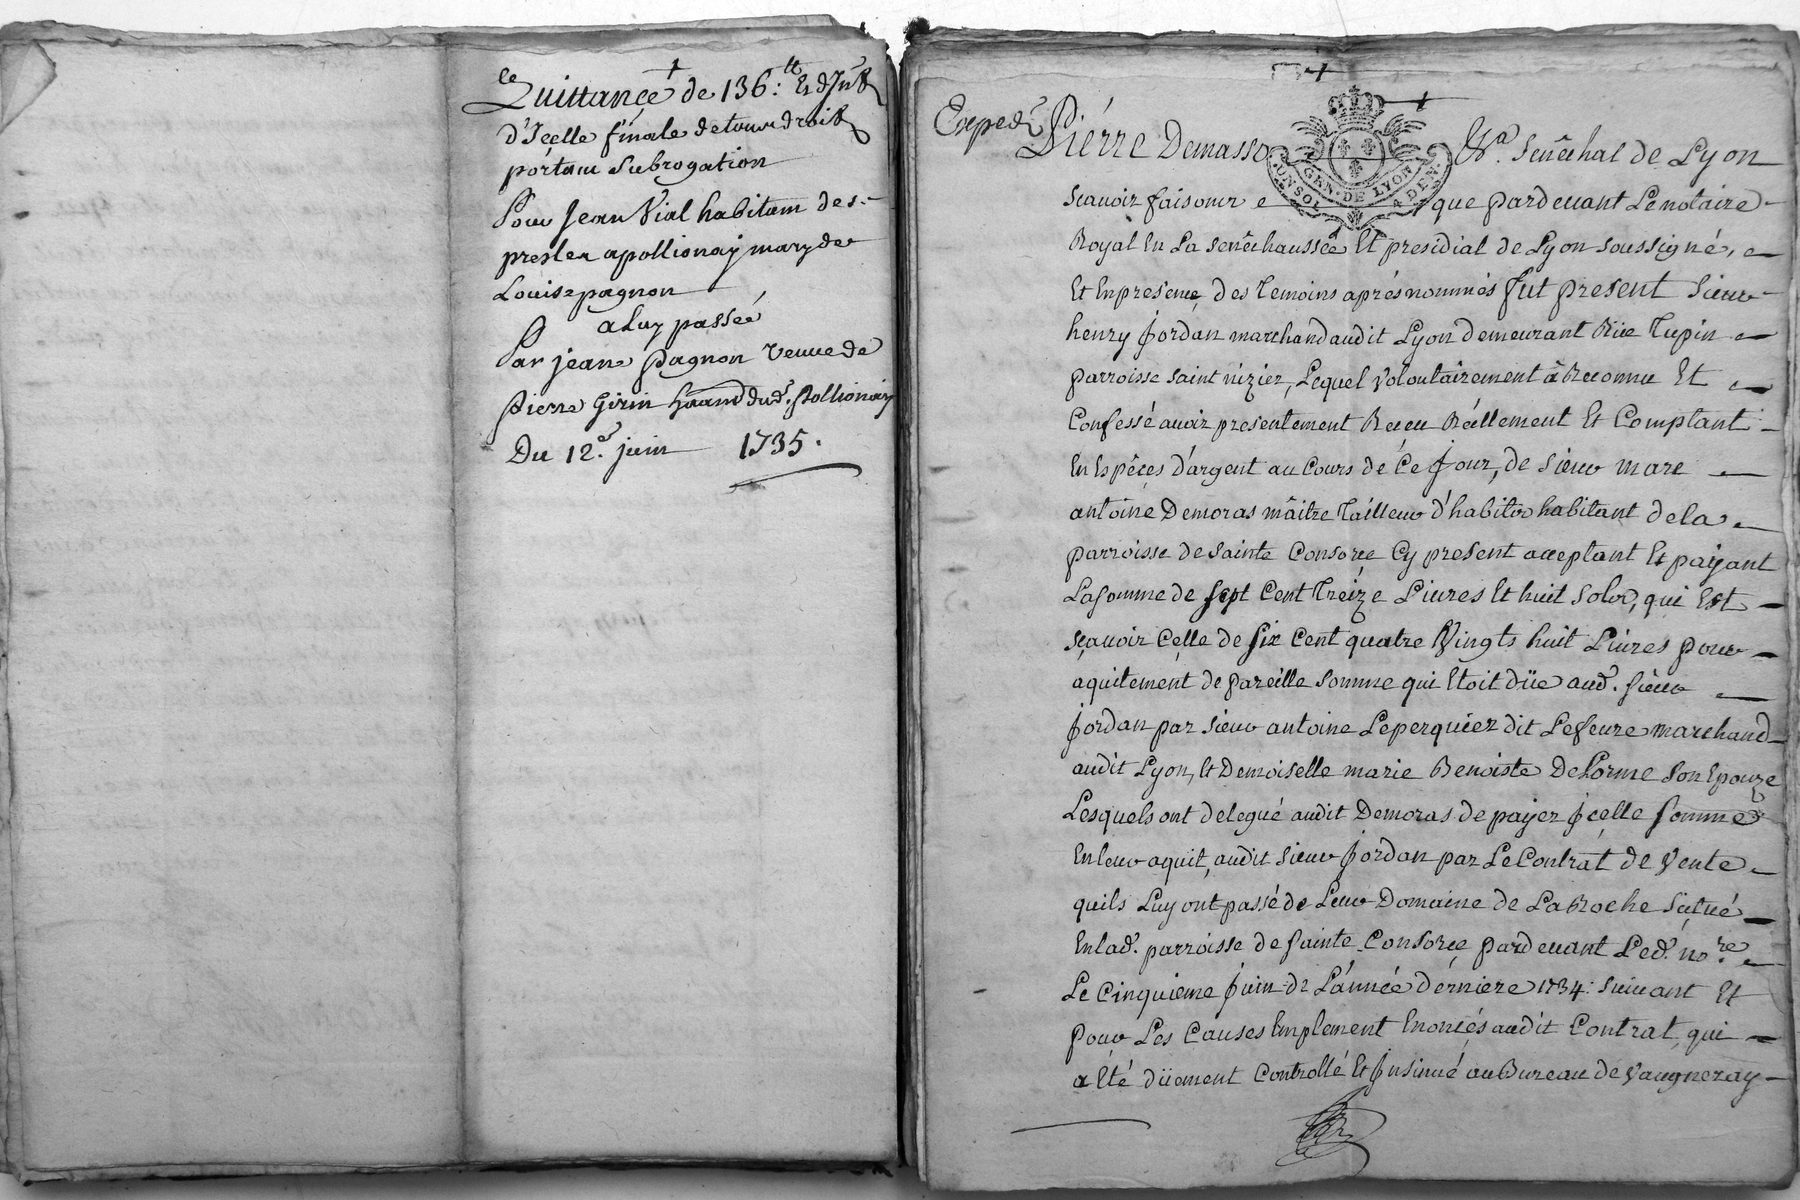 Quittance de 136:tt Et dJnts
d'Jcelle finale de tous droits
portant Subrogation
Pour Jean Vial habitant des
presles a pollionay mary de
Louise pagnon
a Luy passée
Par jeane pagnon veuve de
Pierre Girin dud. Pollionay
Du 12e juin 1735.
Exped.
Pierre Demasso Sénéchal de Lyon
Scavoir faisons que pardevant Le notaire
Royal En La senéchaussée Et presidial de Lyon soussigné,
Et En presence des Temoins aprés nommés fut present Sieur
henry Jordan marchand audit Lyon demeurant Rüe Tupin
parroisse saint nizier, Lequel volontairement â Reconnu Et
Confessé avoir presentement Receu Réellement Et Comptant
En Espêces d'argent au Cours de Ce Jour, de Sieur marc
antoine Demoras mâitre Tailleur d'habits habitant de la
parroisse de sainte Consorce Cy present acceptant Et payant
La somme de sept Cent Treize Livres Et huit Sols, qui Est
sçavoir Celle de six Cent quatre Vingts huit Livres pour
aquitement de pareille somme qui Etoit düe aud. sieur
Jordan par sieur antoine Leperquier dit Lefevre marchand
audit Lyon, Et Demoiselle marie Benoiste DeLorme son Epouze
Lesquels ont delegué audit Demoras de payer Jcelle somme
En leur aquit, audit sieur Jordan par Le Contrat de Vente
quils Luy ont passé de Leur Domaine de La Roche Scitué
En lad. parroisse de sainte Consorce pardevant Led. nore
Le Cinquieme Juin de L'année dérniere 1734: suivant Et
pour Les Causes Emplement Enoncés audit Contrat, qui
a Eté düement Controllé Et Jnsinué au Bureau de Vaugneray
GEN. DE LYON